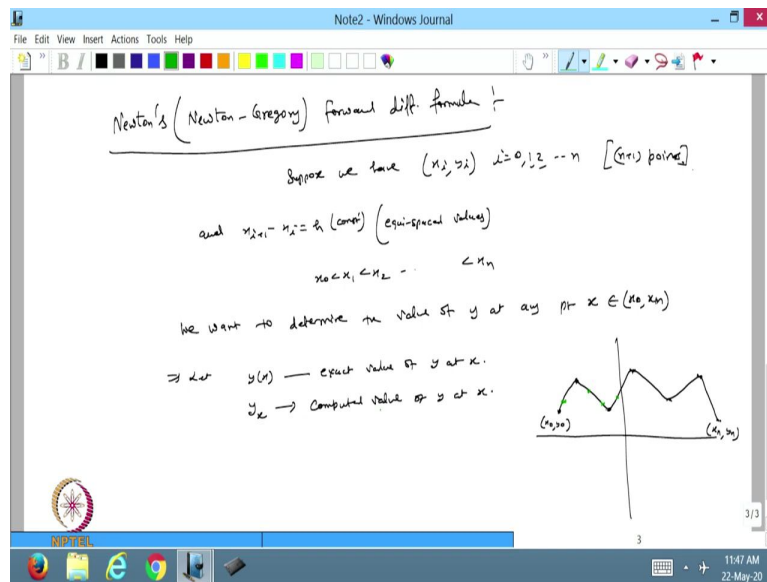 Note2 - Windows Journal
File Edit View Insert Actions Tools Help
B I
Newton's (Newton-Gregory) forward diff. formula :-
Suppose we have (xi, yi) i=0,1,2 --- n [(n+1) points]
and xi+1 - xi = h (const) (equi-spaced values)
x0 < x1 < x2 - .. < xn
We want to determine the value of y at any pt x ∈ (x0, xn)
⇒ Let y(x) — exact value of y at x.
yx → Computed value of y at x.
(x0, y0)
(xn, yn)
NPTEL
3/3
3
11:47 AM
22-May-20